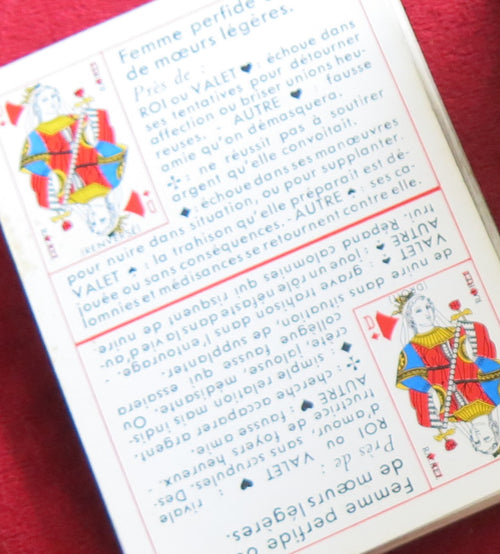 Femme perfide
de mœurs légères.
Près de :
ROI ou VALET ♥ : échoue dans
ses tentatives pour détourner
affection ou briser unions heu-
reuses. - AUTRE ♥ : fausse
amie qu'on démasquera.
♣ : ne réussit pas à soutirer
argent qu'elle convoitait.
♦ : échoue dans ses manœuvres
pour nuire dans situation, ou pour supplanter.
VALET ♠ : la trahison qu'elle préparait est dé-
jouée ou sans conséquences. - AUTRE ♠ : ses ca-
lomnies et médisances se retournent contre elle.
D
(RENVERS
Femme perfide ou
de mœurs légères.
Près de :
ROI ou VALET ♥ : rivale
d'amour, sans scrupules. Des-
tructrice de foyers heureux. -
AUTRE ♥ : fausse amie.
♣ : cherche occaparer argent.
♦ : simple relation mais indis-
crète, jalouse, médisante. Ou
collègue fausse qui essaiera
de nuire dans situation, de supplanter.
VALET ♠ : grave trahison dans l'entourage. -
AUTRE ♠ : joue un rôle néfaste dans la vie d'au-
trui. Répand calomnies qui risquent de nuire.
D
(DROI